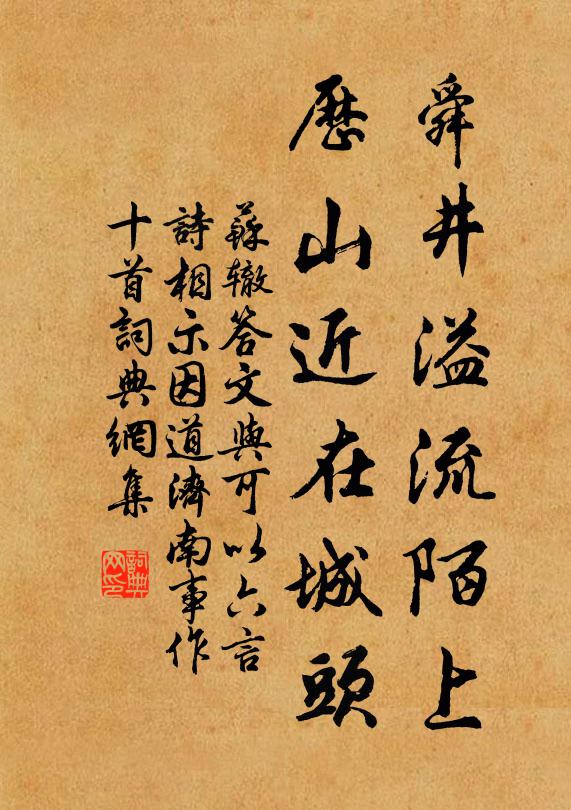 舜井溢流陌上
歷山近在城頭
蘇轍答文與可以六言
詩相示因道濟南事作
十首詞典網集
詞典
网印